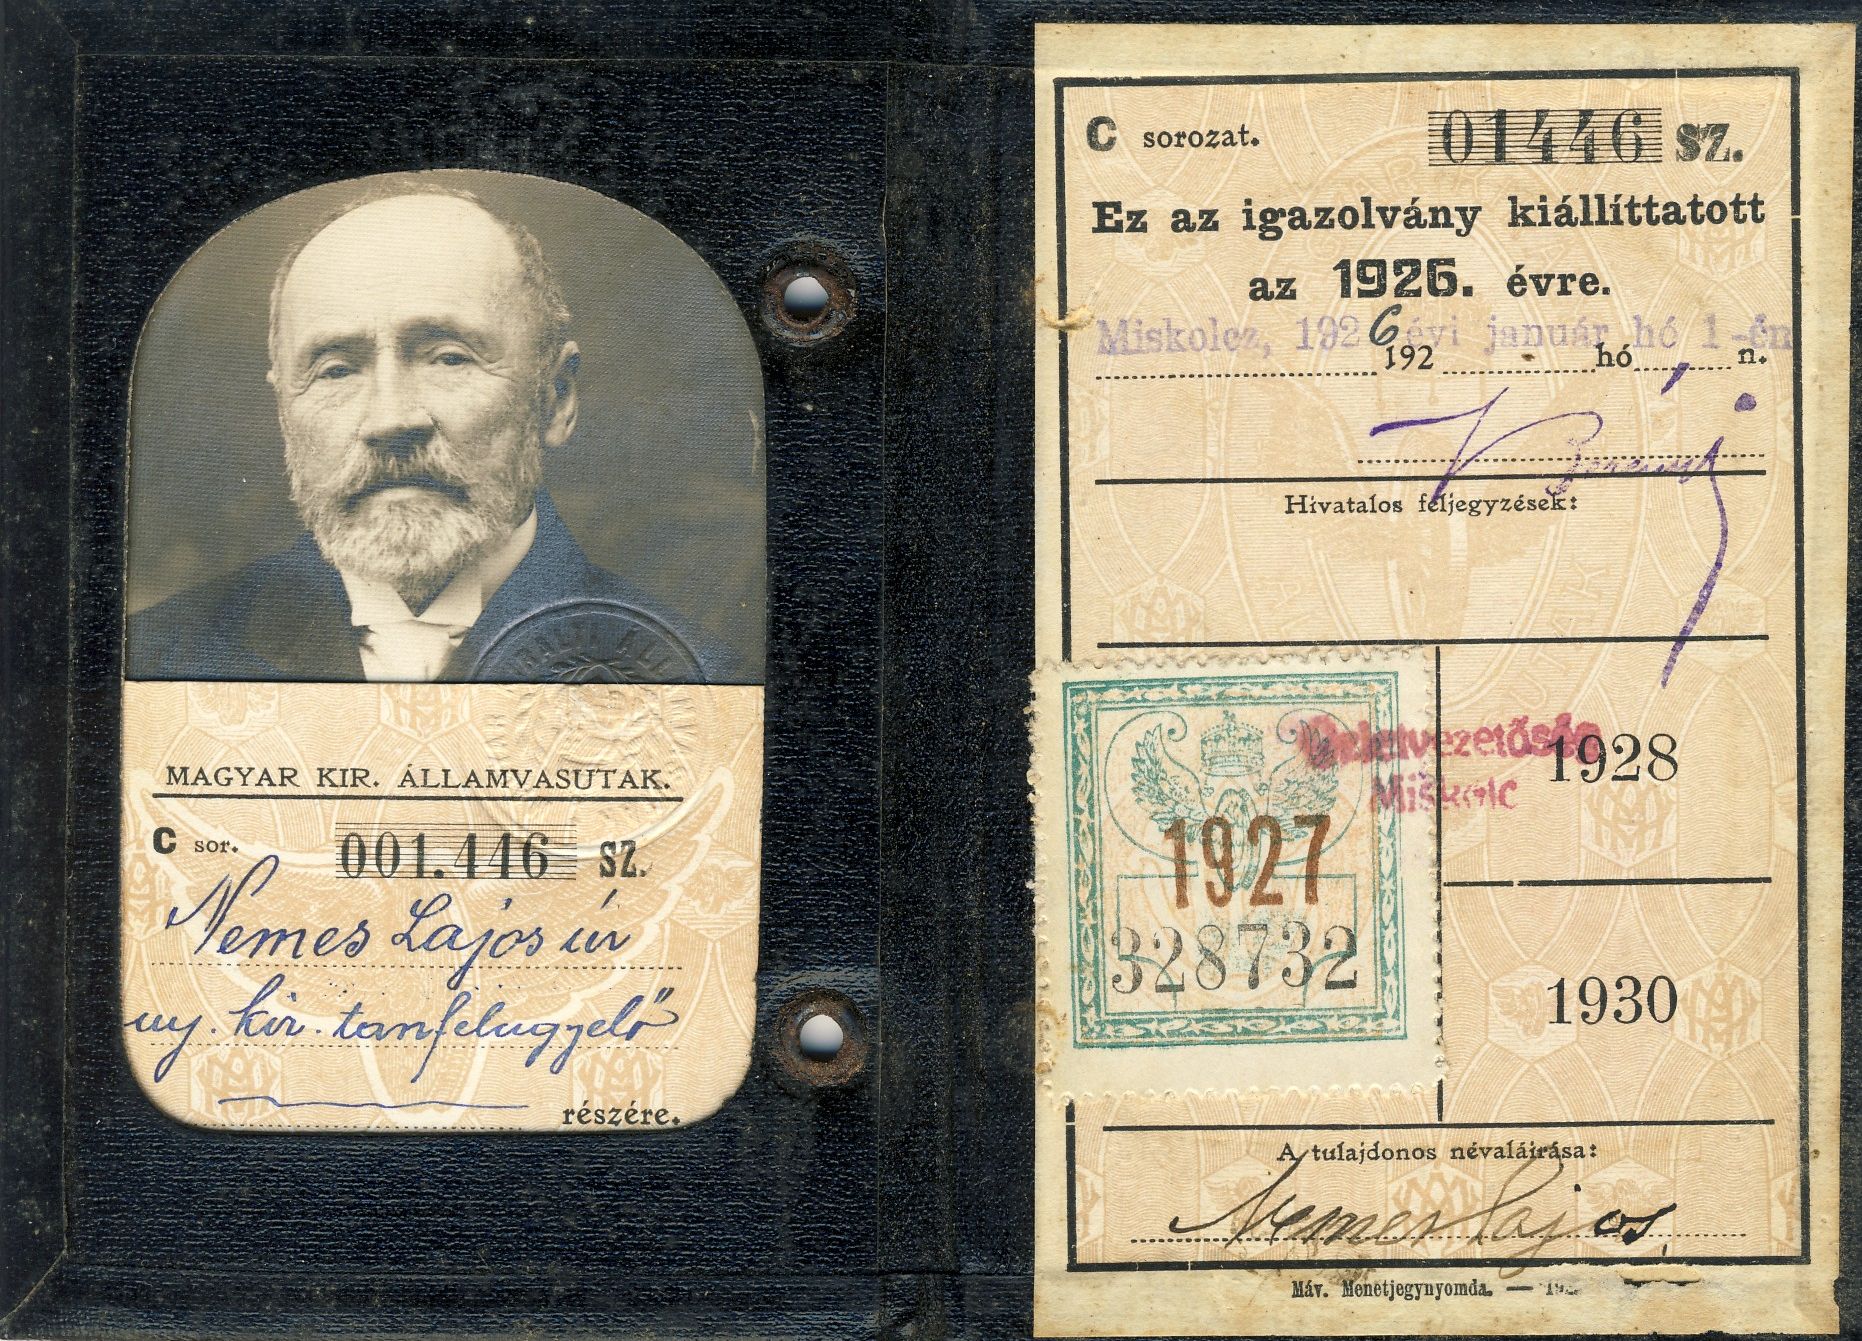 MAGYAR KIR. ÁLLAMVASUTAK.
C sor. 001.446 SZ.
Nemes Lajos úr
ny. kir. tanfelügyelő
részére.
C sorozat. 01446 SZ.
Ez az igazolvány kiállíttatott
az 1926. évre.
Miskolcz, 1926 évi január hó 1-én
192 hó n.
Hivatalos feljegyzések:
Üzletvezetőség
Miskolc
1928
1927
328732
1930
A tulajdonos névaláirása:
Nemes Lajos
Máv. Menetjegynyomda. —